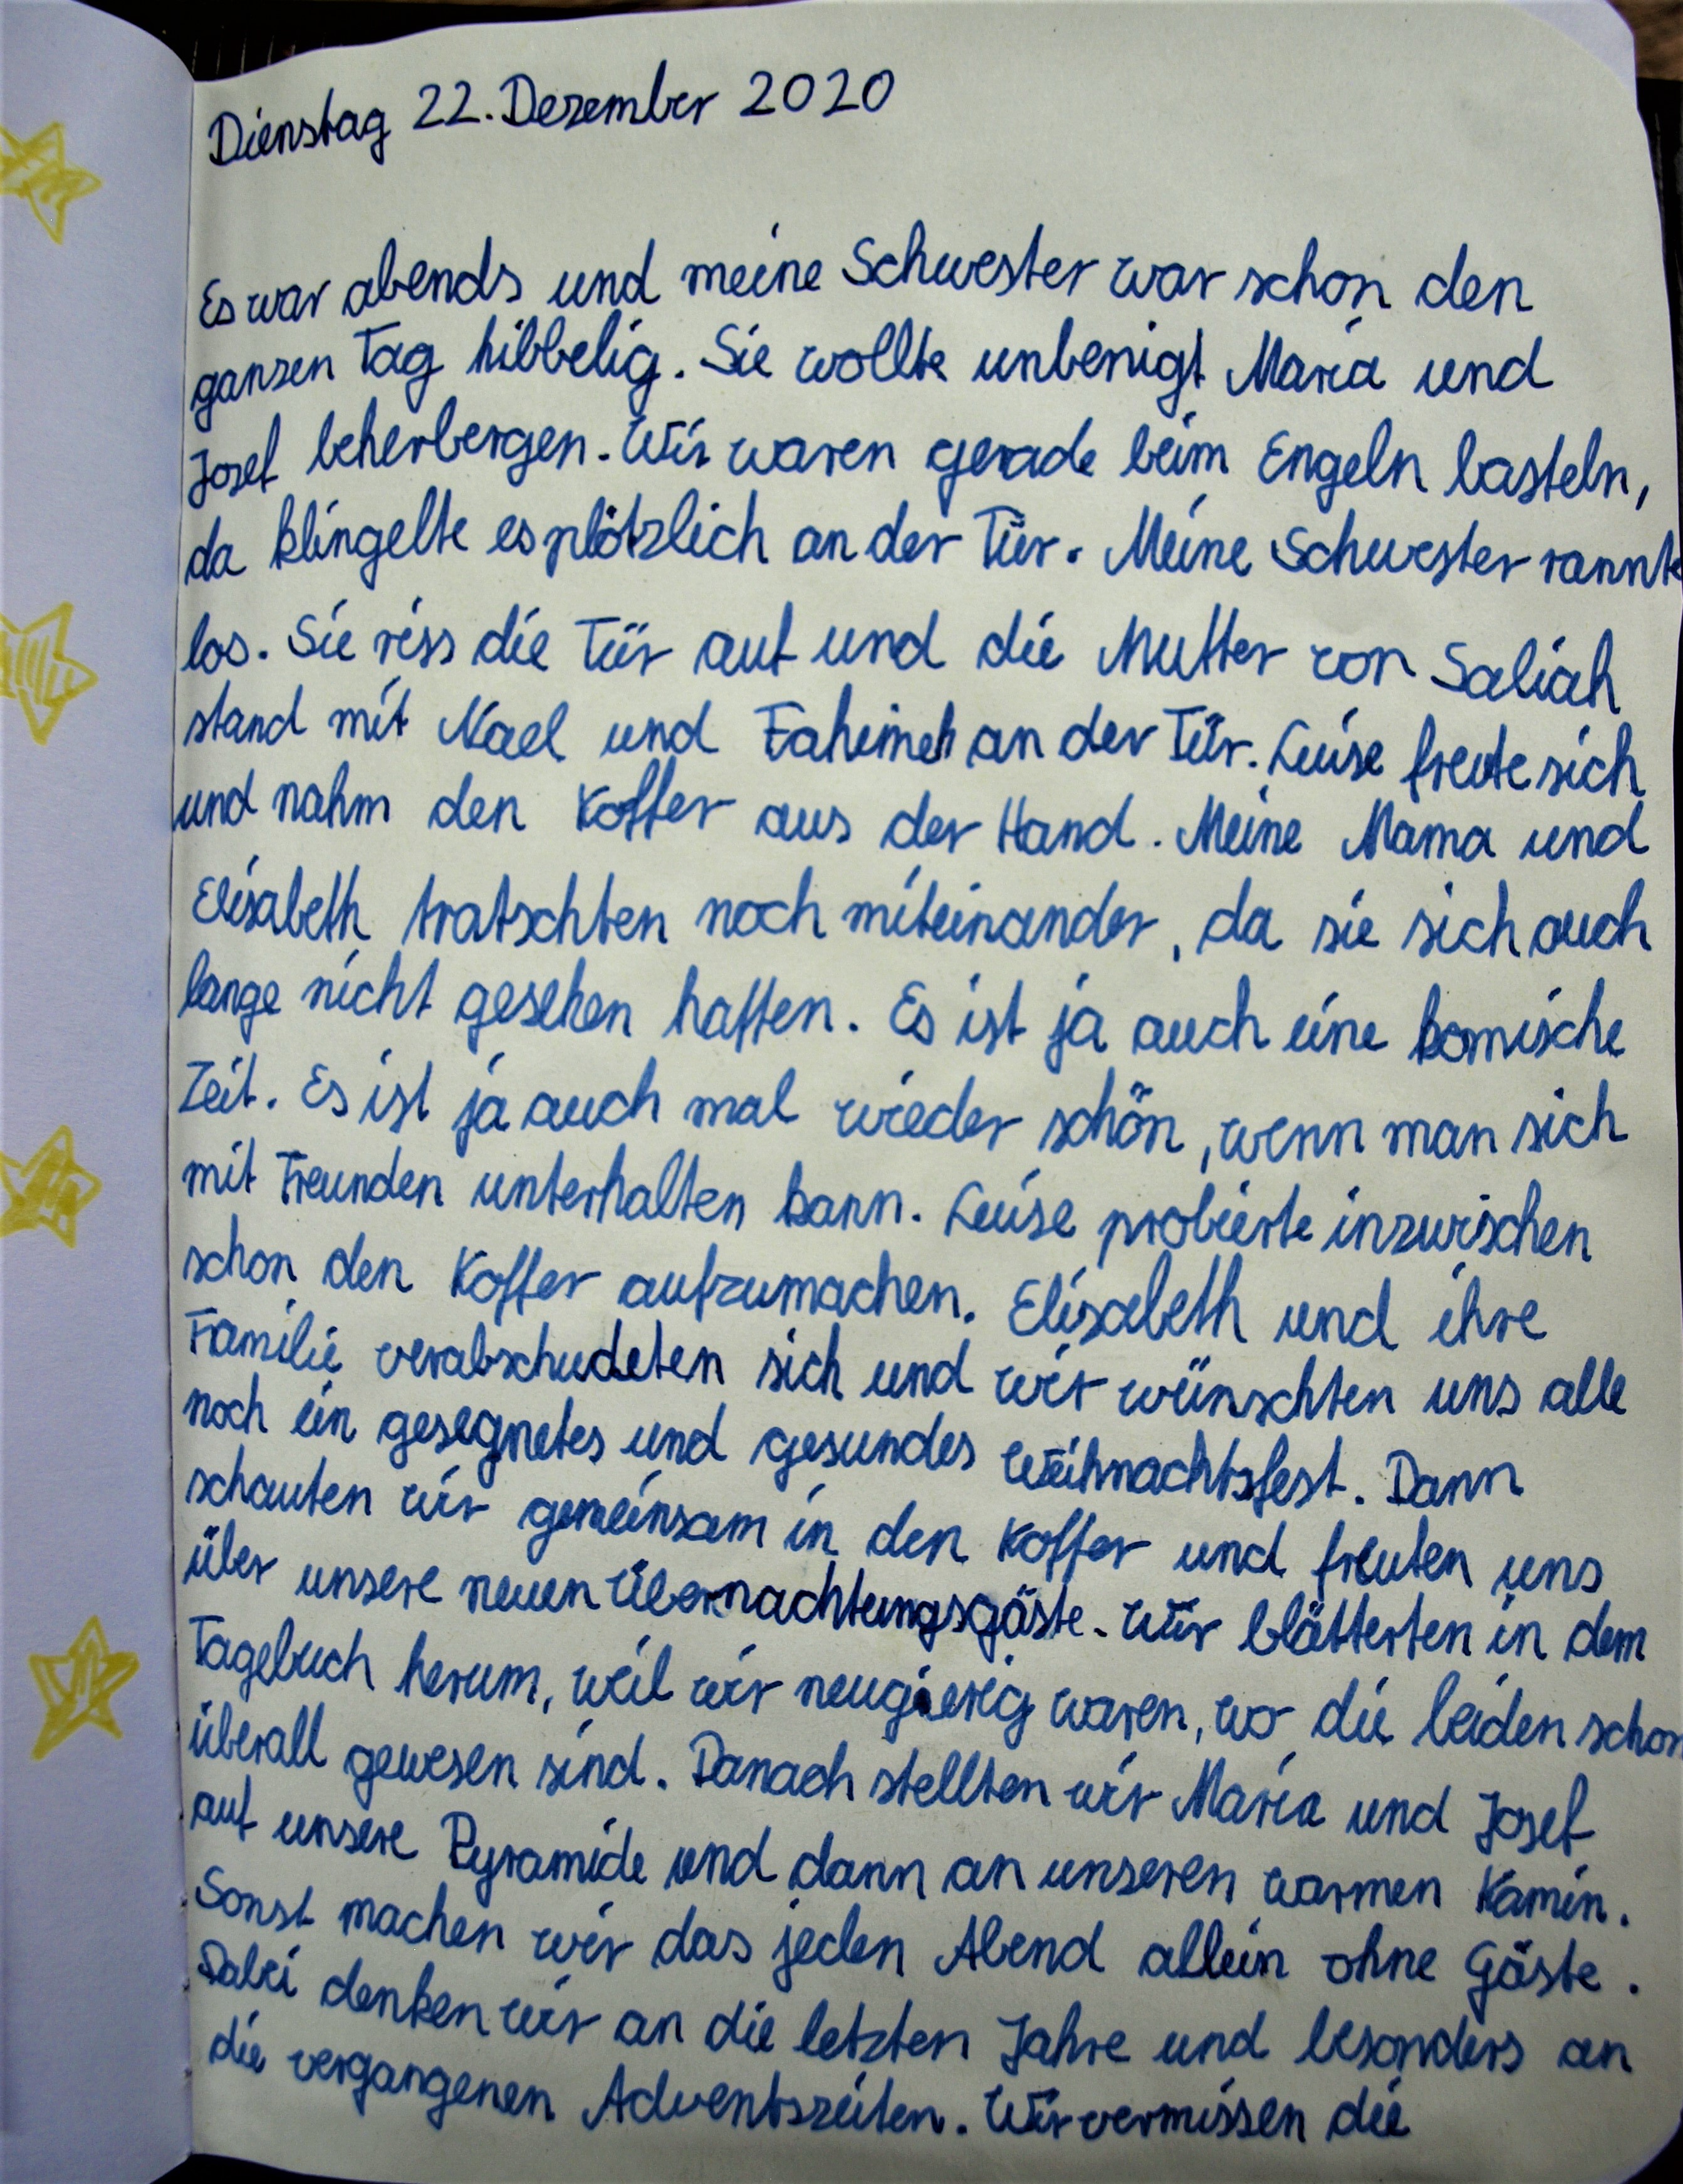 Dienstag 22. Dezember 2020
Es war abends und meine Schwester war schon den
ganzen Tag hibbelig. Sie wollte unbenigt Maria und
Josef beherbergen. Wir waren gerade beim Engeln basteln,
da klingelte es plötzlich an der Tür. Meine Schwester rannte
los. Sie riss die Tür auf und die Mutter von Saliah
stand mit Nael und Fahimeh an der Tür. Luise freute sich
und nahm den Koffer aus der Hand. Meine Mama und
Elisabeth tratschten noch miteinander, da sie sich auch
lange nicht gesehen hatten. Es ist ja auch eine komische
Zeit. Es ist ja auch mal wieder schön, wenn man sich
mit Freunden unterhalten kann. Luise probierte inzwischen
schon den Koffer aufzumachen. Elisabeth und ihre
Familie verabschudeten sich und wir wünschten uns alle
noch ein gesegnetes und gesundes Weihnachtsfest. Dann
schauten wir gemeinsam in den Koffer und freuten uns
über unsere neuen Übernachtungsgäste. Wir blätterten in dem
Tagebuch herum, weil wir neugierig waren, wo die beiden schon
überall gewesen sind. Danach stellten wir Maria und Josef
auf unsere Pyramide und dann an unseren warmen Kamin.
Sonst machen wir das jeden Abend allein ohne Gäste.
Dabei denken wir an die letzten Jahre und besonders an
die vergangenen Adventszeiten. Wir vermissen die